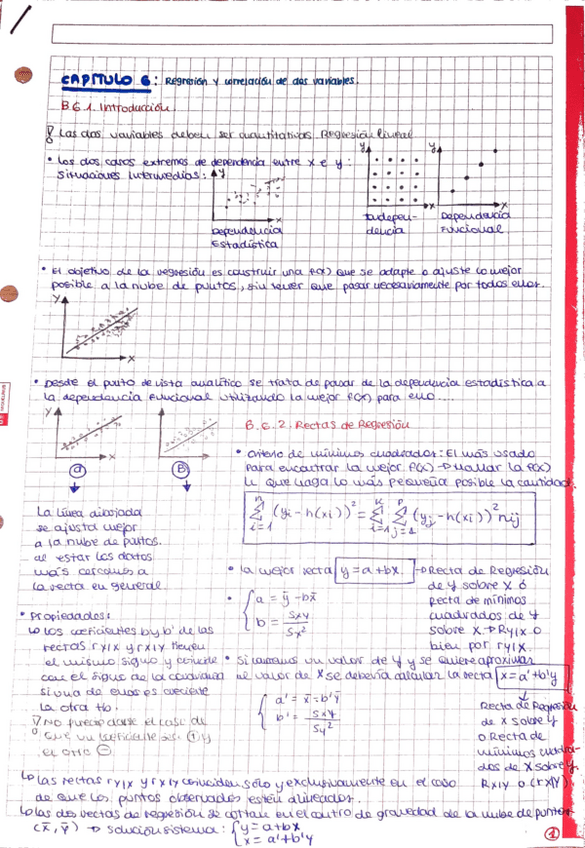 CAPÍTULO 6: Regresión y correlación de dos variables.
B.6.1. Introducción.
! Las dos variables deben ser cuantitativas. Regresión lineal
• Los dos casos extremos de dependencia entre X e Y:
situaciones intermedias:
Y
X
Dependencia
Estadística
Y
X
Indepen-
dencia
Y
X
Dependencia
Funcional.
• El objetivo de la regresión es construir una f(x) que se adapte o ajuste lo mejor
posible a la nube de puntos, sin tener que pasar necesariamente por todos ellos.
Y
X
• Desde el punto de vista analítico se trata de pasar de la dependencia estadística a
la dependencia funcional utilizando la mejor f(x) para ello....
Y
X
a
b
La línea dibujada
se ajusta mejor
a la nube de puntos.
al estar los datos
más cercanos a
la recta en general
B.6.2. Rectas de Regresión
• Criterio de mínimos cuadrados: El más usado
para encontrar la mejor f(x) → hallar la f(x)
que haga lo más pequeña posible la cantidad:
n Σ i=1 (yi - h(xi))² = k Σ i=1 p Σ j=1 (yj - h(xi))² nij
• La mejor recta y = a + bx → Recta de Regresión
de Y sobre X ó
recta de mínimos
cuadrados de Y
sobre X → RY/X o
bien por rY/X.
a = ȳ - bx̄
b = Sxy / Sx²
• Propiedades:
↳ Los coeficientes b y b' de las
rectas rY/X y rX/Y tienen
el mismo signo y coincide
con el signo de la covarianza
si una de ellas es creciente
la otra tb.
! No puede darse el caso de
que un coeficiente sea + y
el otro -.
• Si tenemos un valor de Y y se quiere aproximar
el valor de X se debería calcular la recta x = a' + b'y
a' = x̄ - b'ȳ
b' = Sxy / Sy²
Recta de Regresión
de X sobre Y
o Recta de
mínimos cuadra-
dos de X sobre Y.
RX/Y o (rX/Y)
↳ Las rectas rY/X y rX/Y coinciden sólo y exclusivamente en el caso
de que los puntos observados estén alineados.
↳ Las dos rectas de regresión se cortan en el centro de gravedad de la nube de puntos
(x̄, ȳ) → solución sistema: y = a + bx
x = a' + b'y
1